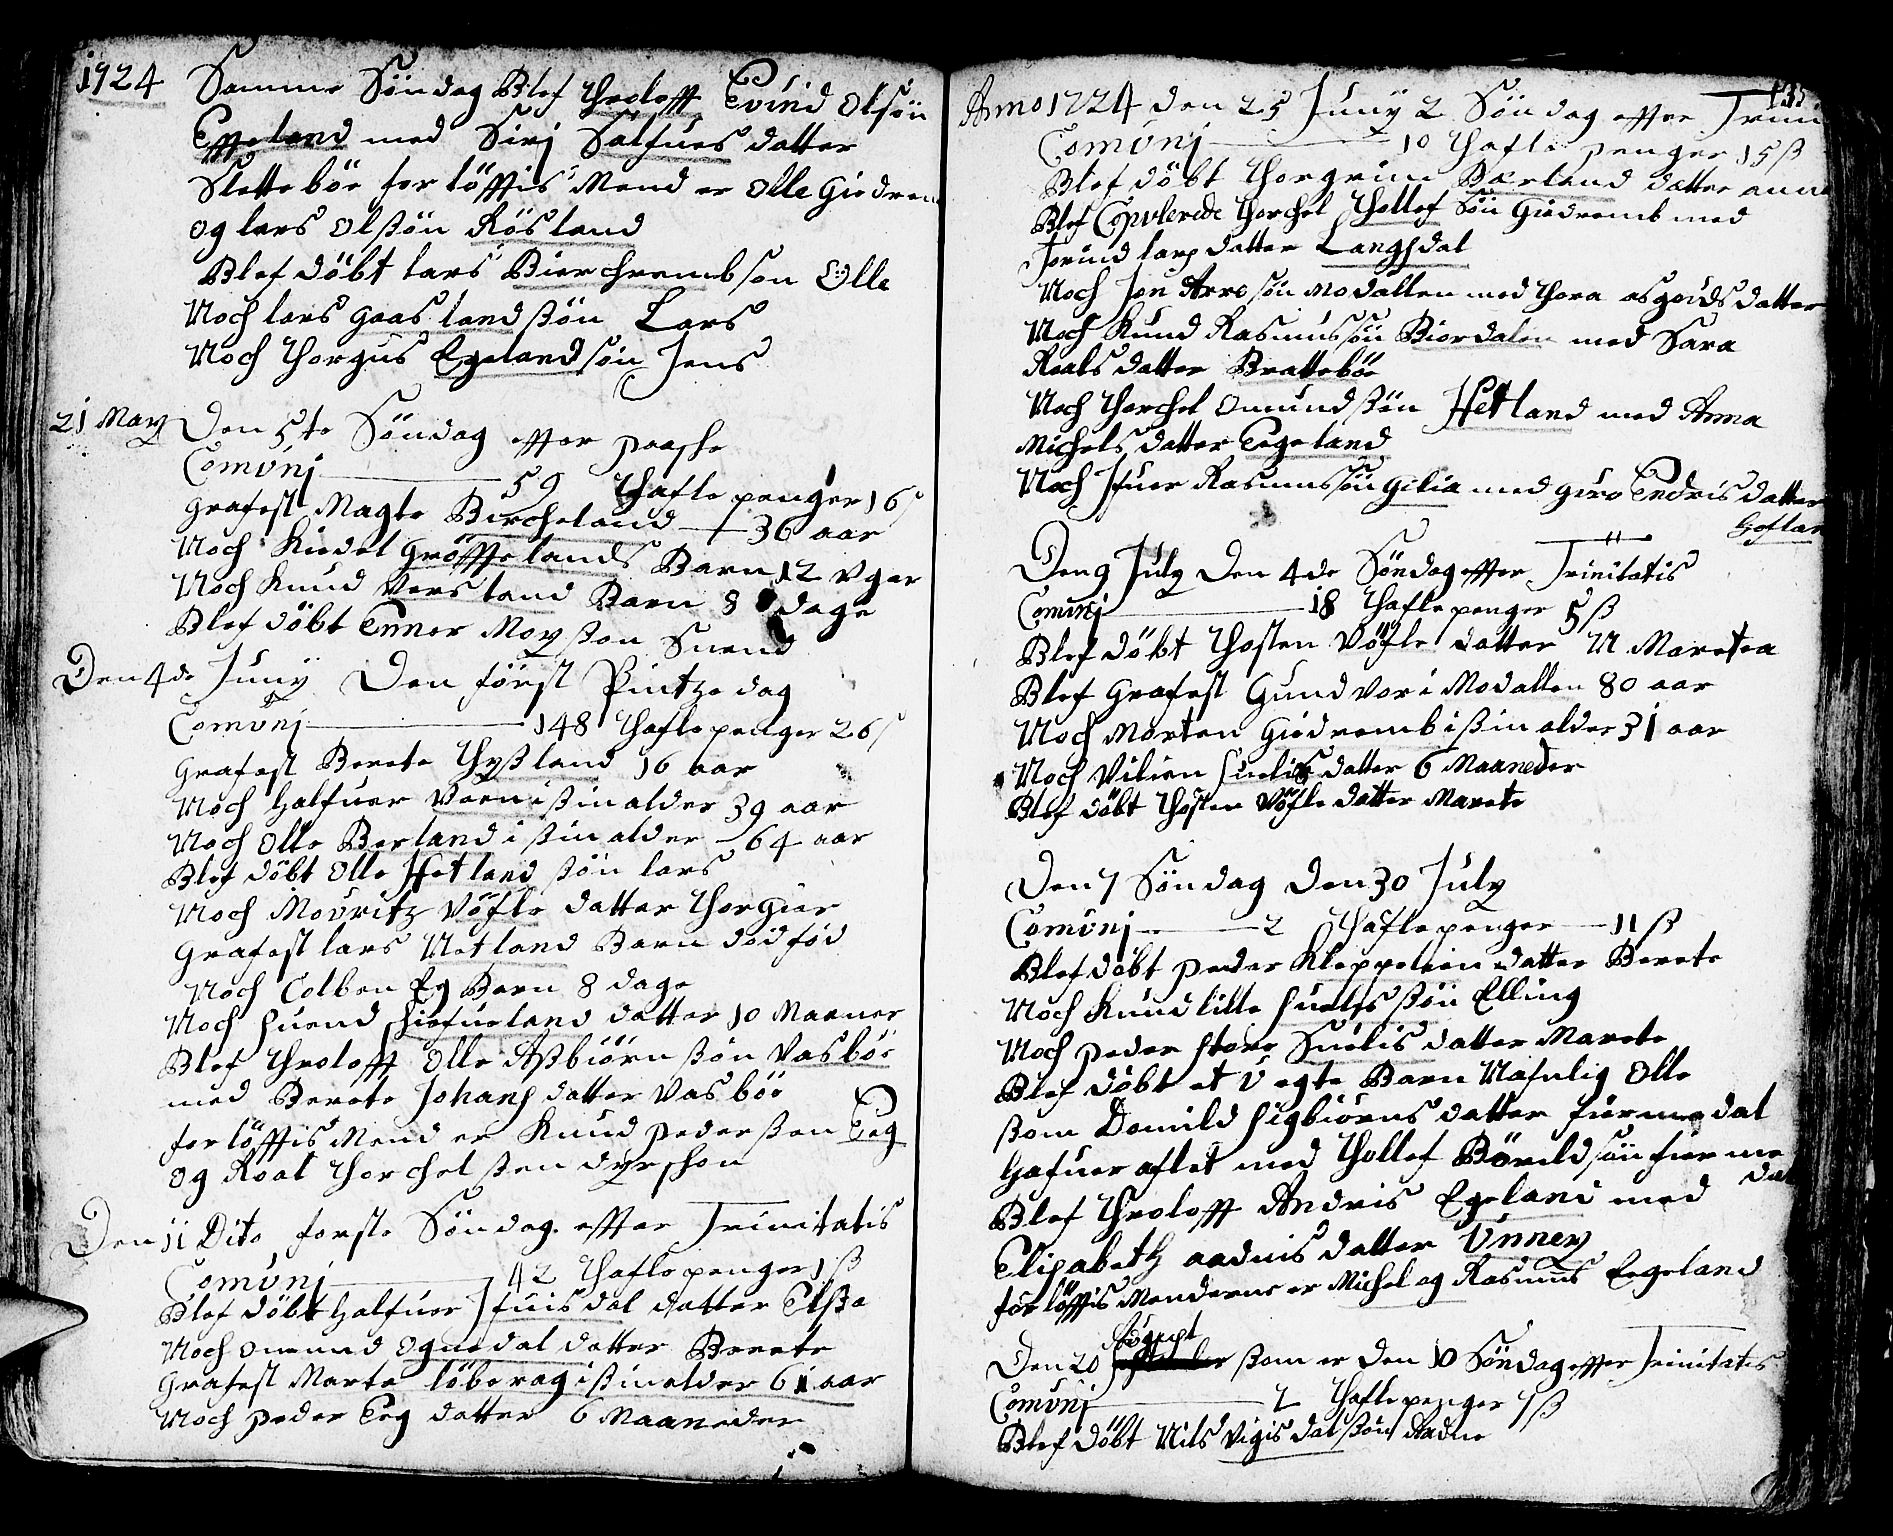 1724 Samme Söndag Blef throloff Evind Olsön
Egeland med Sirj Salfues datter
Sletteböe forlöffis Mend er Olle Giedrem
og lars Olssön Rösland
Blef döbt lars Bierchremb son Olle
Noch lars gaasland ssön Lars
Noch thorgus Egeland sön Jens
21 May Den 5te Söndag effter paaske
Comunj 59 thafle penger 16 s
Grafest Magte Bircheland 36 aar
Noch Kiedel Gröffelands Barn 12 Vger
Noch Knud Versland Barn 8 dage
Blef döbt Enner Moy sson Suend
Den 4de Juny Den först Pintzedag
Comunj 148 thaflepenger 26 s
Grafest Berete thyssland 16 aar
Noch halfuer Vaen i ssin alder 39 aar
Noch Olle Berland i ssin alder 64 aar
Blef döbt Olle Hetland ssön lars
Noch Mouritz Vöfle datter thorgier
Grafest lars Netland Barn dödföd
Noch Colben Eg Barn 8 dage
Noch suend datter 10 Maaner
Blef throloff Olle Assbiörn ssön Vasböe
med Berete Johans datter Vasböe
forlöffis Mend er Knud peder ssen Eeg
og Roal thorchel ssen dyrschon
Den 11 Dito forste Söndag effter Trinitatis
Comunj 42 thaflepenger 1 ß
Blef döbt halfuer Jfuisdal datter Elssa
Noch omund ognedal datter Berete
Grafest Marta löberag i ssin alder 61 aar
Noch peder Eeg datter 6 Maaneder
Anno 1724 den 25 Juny 2 Söndag effter Trini
Comunj 10 thafle penger 15 ß
Blef döbt thorgrim Bærland datter anne
Blef Copulerede thorchel thollef sön Giedremb med
Jorind lars datter Langsdal
Noch Jon Arre sön Modallen med thora asgouds datter
Noch Knud Rasmussön Biordalen med Sara
Roals datter Bratteböe
Noch thorchel omund ssön Hetland med Anna
Michels datter Eegeland
Noch Jfuer Rasmussön gilia med guro Endris datter
Goftlan
Den 9 July Den 4de Söndag effter Trinitatis
Comunj 18 thaflepenger 5 ß
Blef döbt thosten Vöfle datter N Maretea
Blef Grafest Gundvor i Modallen 80 aar
Noch Morten Giedremb i ssin alder 31 aar
Noch Vilien suelis datter 6 Maaneder
Blef döbt thosten Vöfle datter Marete
Den 7 Söndag Den 30 July
Comunj 2 thaflepenger 11 ß
Blef döbt peder Kleppelien datter Berete
Noch Knud lille suelis ssön Elling
Noch peder store Suelis datter Marete
Blef döbt et Uegte Barn Nafnlig Olle
ssom Domild sigbiörns datter furmedal
Hafuer aflet med thollef Böreld sön furme
dal
Blef throloff Andris Egeland med
Elisabeth aadnis datter Unney
forlöffis Menderne er Michel og Rasmus Eegeland
August
Den 20 ssom er den 10 Söndag effter Trinitatis
Comunj 2 thaflepenger 7 ß
Blef döbt Nils Vigisdal ssön Aadne